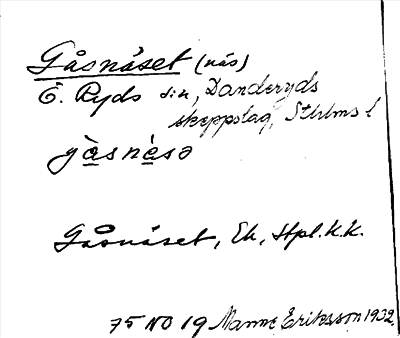 Gåsnäset (näs)
Ö. Ryds sn, Danderyds
skeppslag, Sthlms l
gå̀snè̱sə
Gåsnäset, Ek, Htpl.k.k.
75 NO 19 Manne Eriksson 1932.